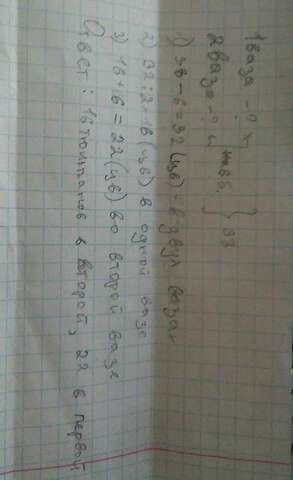 1 ваза - ? ц
2 ваза - ? ц на 6 б. } 38
1) 38 - 6 = 32 (цв) - в двух вазах
2) 32 : 2 = 16 (цв) в одной вазе
3) 16 + 6 = 22 (цв) во второй вазе
Ответ: 16 тюльпанов в второй, 22 в первой